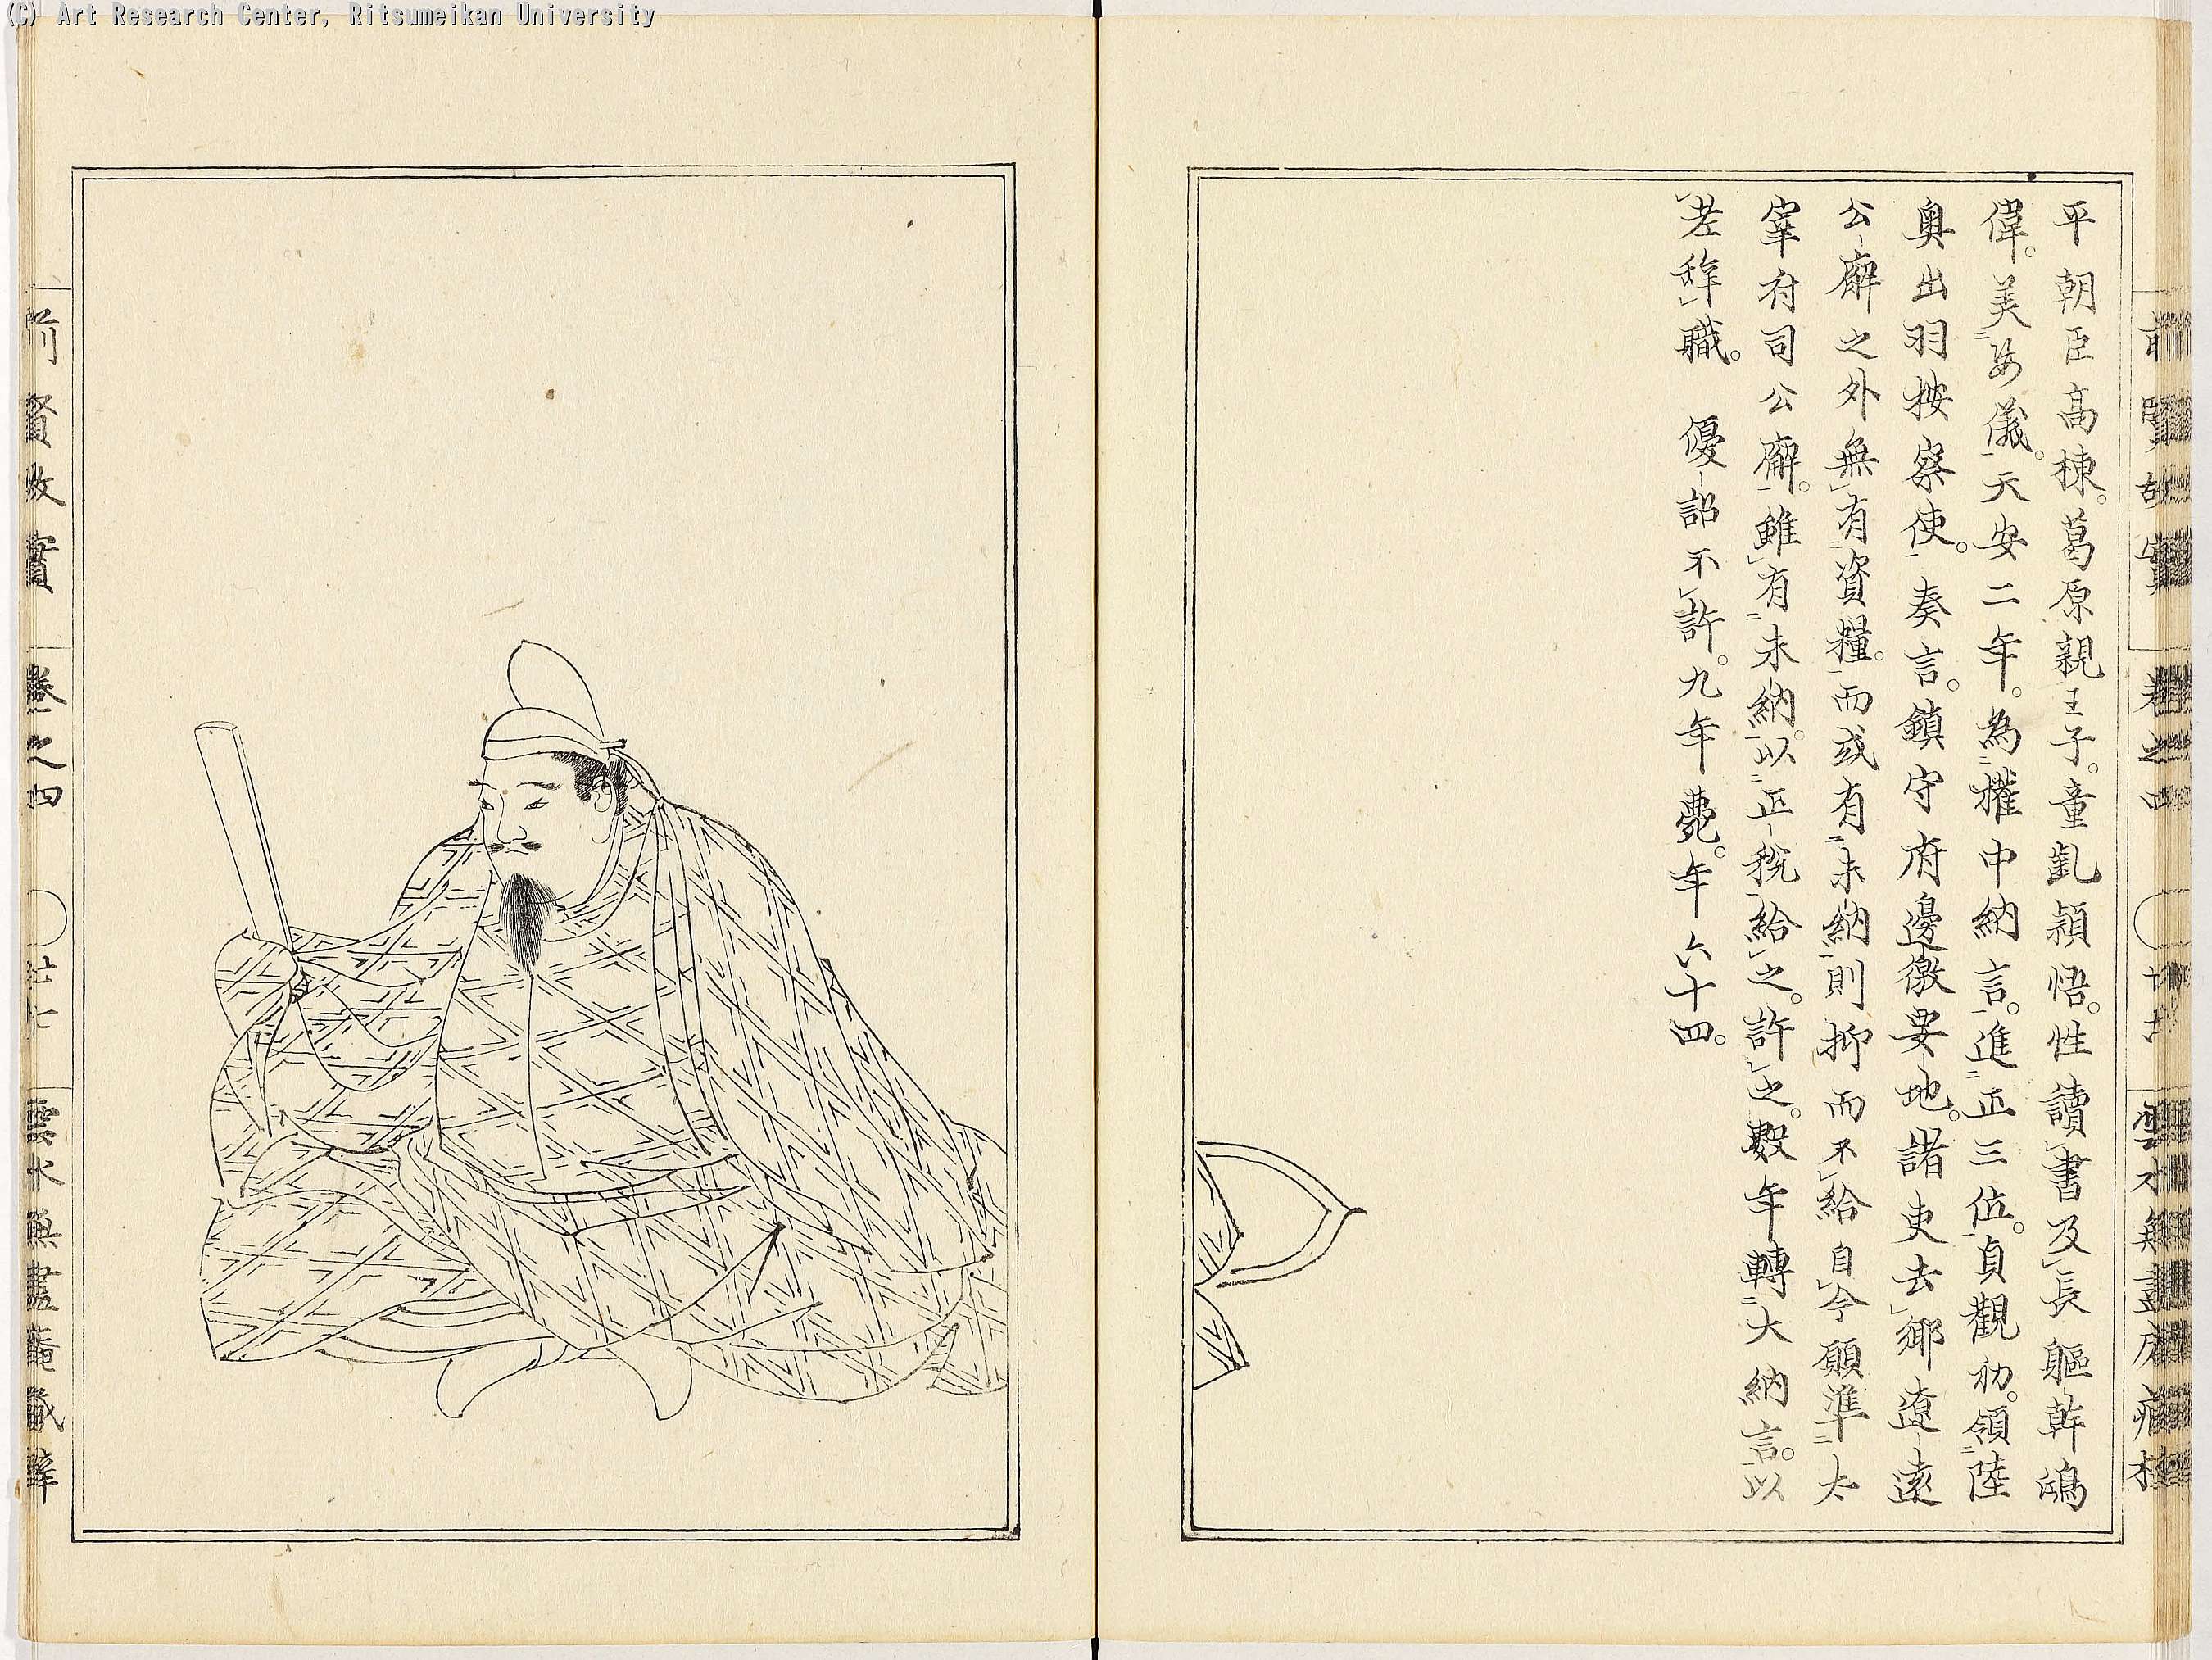 (C) Art Research Center, Ritsumeikan University
平朝臣高棟。葛原親王子。童齓頴悟。性讀書及長軀幹鴻
偉。美姿儀。天安二年。為權中納言。進正三位。貞觀初。領陸
奥出羽按察使。奏言。鎮守府邊徼要地。諸吏去鄉遼遠
公廨之外無有資糧。而或有未納則抑而不給自今願準太
宰府司公廨。雖有未納。以正稅給之。許之。數年轉大納言。以
老辞職。優詔不許。九年薨。年六十四。
前賢故實 卷之四 廿七 雲水無盡庵藏梓